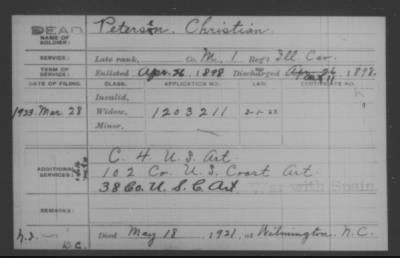 DEAD Peterson, Christian
NAME OF SOLDIER:
SERVICE: Late rank, Co. M, 1 Reg't Ill Cav.
TERM OF SERVICE: Enlisted Apr. 26, 1898 Discharged 1898.
DATE OF FILING. CLASS. APPLICATION NO. LAW. CERTIFICATE NO.
Invalid,
1923 Mar 28 Widow, 1203211
Minor,
C. 4. U.S. Art.
ADDITIONAL SERVICES: 102 Co. U.S. Coast Art.
38 Co. U.S.C. Art War with Spain
REMARKS:
Died May 18, 1921, at Wilmington, N.C.